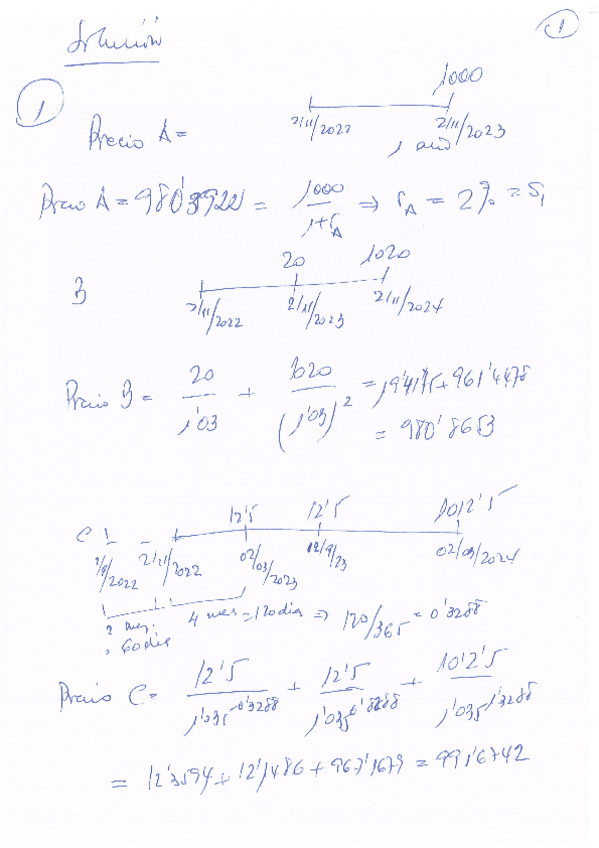 Solución
1
1
1000
2/11/2022 2/11/2023
Precio A =
1 año
Precio A = 980'3922 = 1000 / 1+rA ⇒ rA = 2% = S1
20 1020
B
2/11/2022 2/11/2023 2/11/2024
Precio B = 20 / 1'03 + 1020 / (1'03)^2 = 19'4175 + 961'4478
= 980'8653
12'5 12'5 1012'5
C
2/9/2022 2/11/2022 02/03/2023 02/9/23 02/03/2024
2 mes. 4 mes = 120 días ⇒ 120/365 = 0'3288
= 60 días
Precio C = 12'5 / 1'035^0'3288 + 12'5 / 1'035^0'8288 + 1012'5 / 1'035^1'3288
= 12'3594 + 12'1486 + 967'1679 = 991'6742